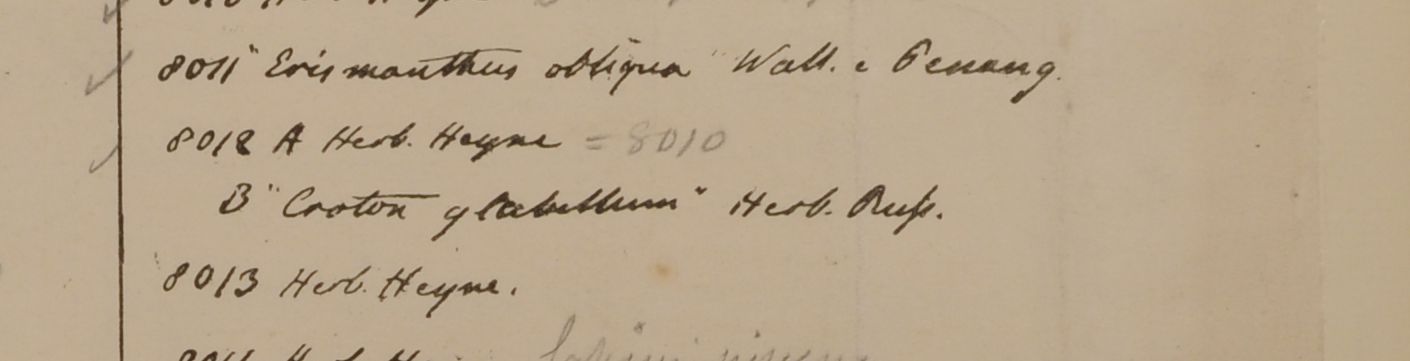 8010 Herb. Heyne
8011 "Erismanthus obliqua" Wall. e Penang.
8012 A Herb. Heyne = 8010
B "Croton glabellum" Herb. Russ.
8013 Herb. Heyne.